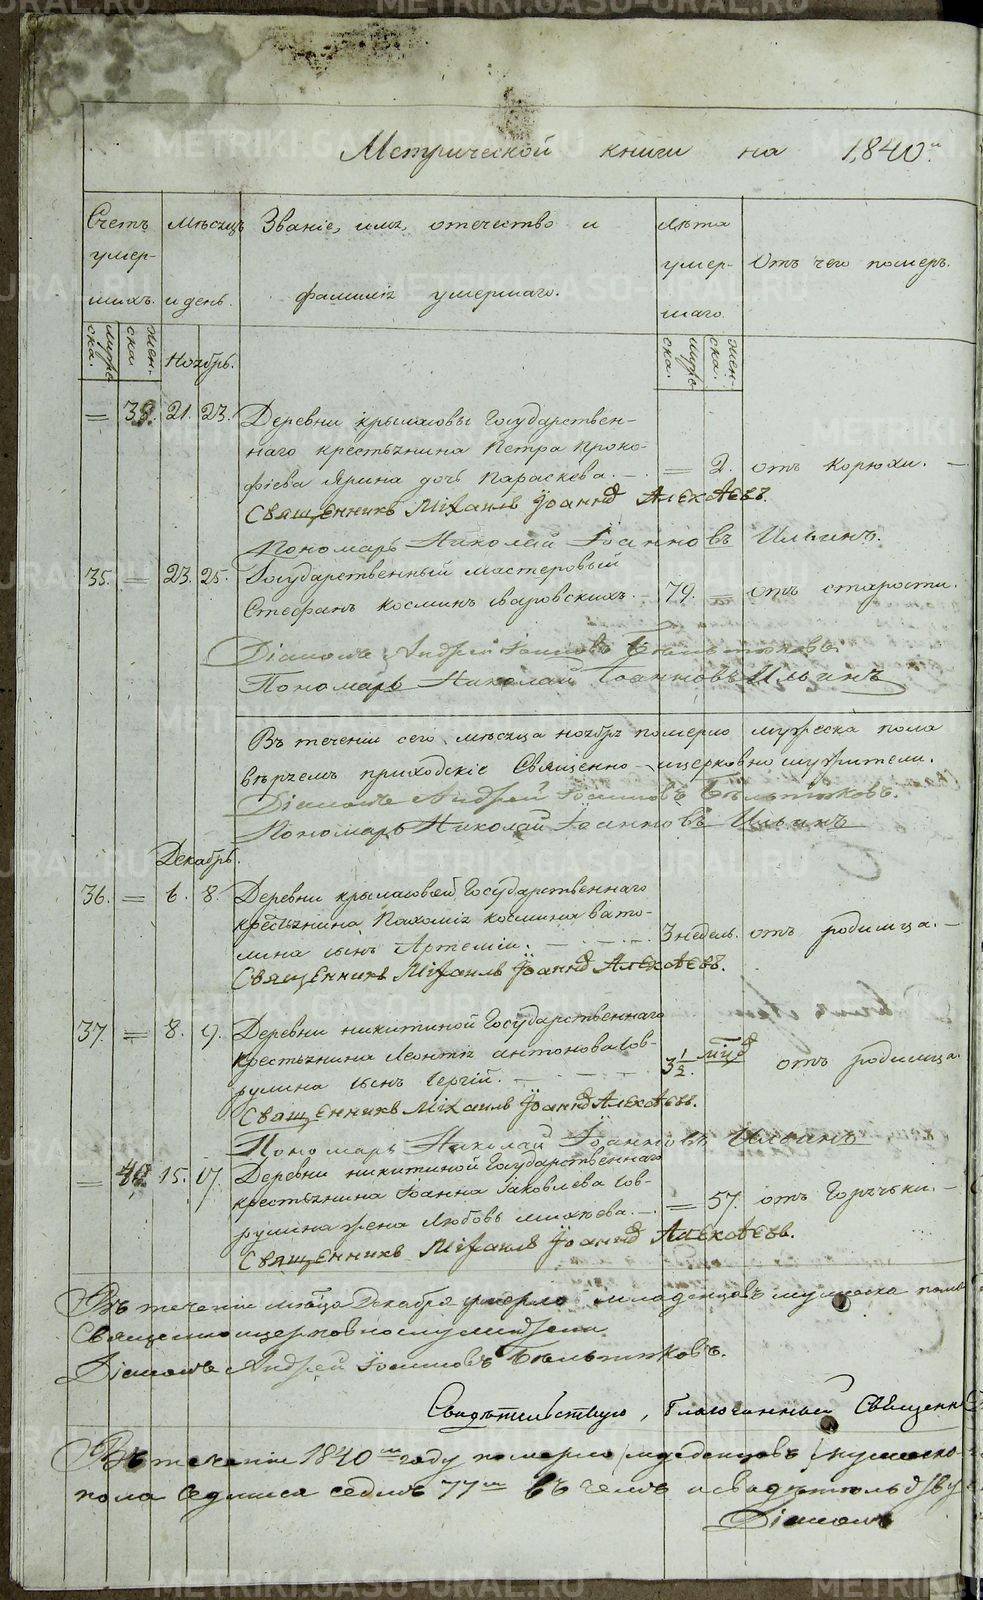 Метрической книги на 1840й.
Счетъ умер- шихъ.
Мѣсяцъ и день.
Званіе, имя, отечество и фамилія умершаго.
Лѣта умер- шаго.
Отъ чего померъ.
мужес- ска. жен- ска. Ноябрь. мужес- ска. жен- ска.
= 39. 21. 23. Деревни Крылаговы Государствен-
наго крестьянина Петра Проко-
фіева Ярина дочь Параскева. — = 2. отъ корюхи. —
Священникъ Михаилъ Іоанновъ Алексѣевъ.
Пономарь Николай Іоанновъ Ильинъ.
35. = 23. 25. Государственный мастеровый
Стефанъ Косминъ 79. = отъ старости.
Діаконъ Андрей Іоанновъ Бѣльтиковъ.
Пономарь Николай Іоанновъ Ильинъ
Въ теченіи сего мѣсяца ноября померло мужеска пола
вѣруемъ приходскіе Священно-церковнослужители.
Діаконъ Андрей Іоанновъ Бѣльтиковъ.
Пономарь Николай Іоанновъ Ильинъ
Декабрь.
36. = 6. 8. Деревни Крылаговой Государственнаго
крестьянина Пахомія Космина Вато-
мина сынъ Артемій. — 3 недель. отъ родимца. —
Священникъ Михаилъ Іоанновъ Алексѣевъ.
37. = 8. 9. Деревни Никитиной Государственнаго
крестьянина Леонтія Антонова Сов-
рулина сынъ Сергій. — 3½ мѣц. отъ родимца.
Священникъ Михаилъ Іоанновъ Алексѣевъ.
Пономарь Николай Іоанновъ Ильинъ
= 40. 15. 17. Деревни Никитиной Государственнаго
крестьянина Іоанна Іаковлева Сов-
рулина жена Любовь Михѣева. — = 57. отъ Горячьки. —
Священникъ Михаилъ Іоанновъ Алексѣевъ.
Въ теченіи мѣсяца Декабря умерло младенцовъ мужеска пола
Священноцерковнослужители
Діаконъ Андрей Іоанновъ Бѣльтиковъ.
Свидѣтельствую, Благочинный Священн
Въ теченіи 1840го году померло младенцовъ мужеско
пола седмьдесятъ седмь 77мь въ чемъ и свидѣтельству
Діаконъ
METRIKI.GASO-URAL.RU